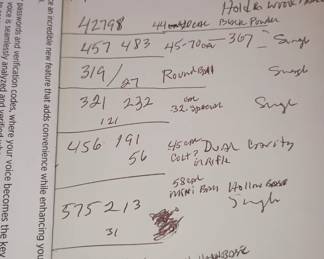 Hold
42798 44 cal Black Powder
457 483 45-70 cal - 307 = Single
319/27 Round Ball Single
321 232 32 Special Single
121
456 191 45 cal Dual Cavity
56 Colt? in Rifle
58 cal
mini Ball Hollow Base
575 213 Single
31
ce an incredible new feature that adds convenience while enhancing you
passwords and verification codes, where your voice becomes the key
ice is seamlessly analyzed and